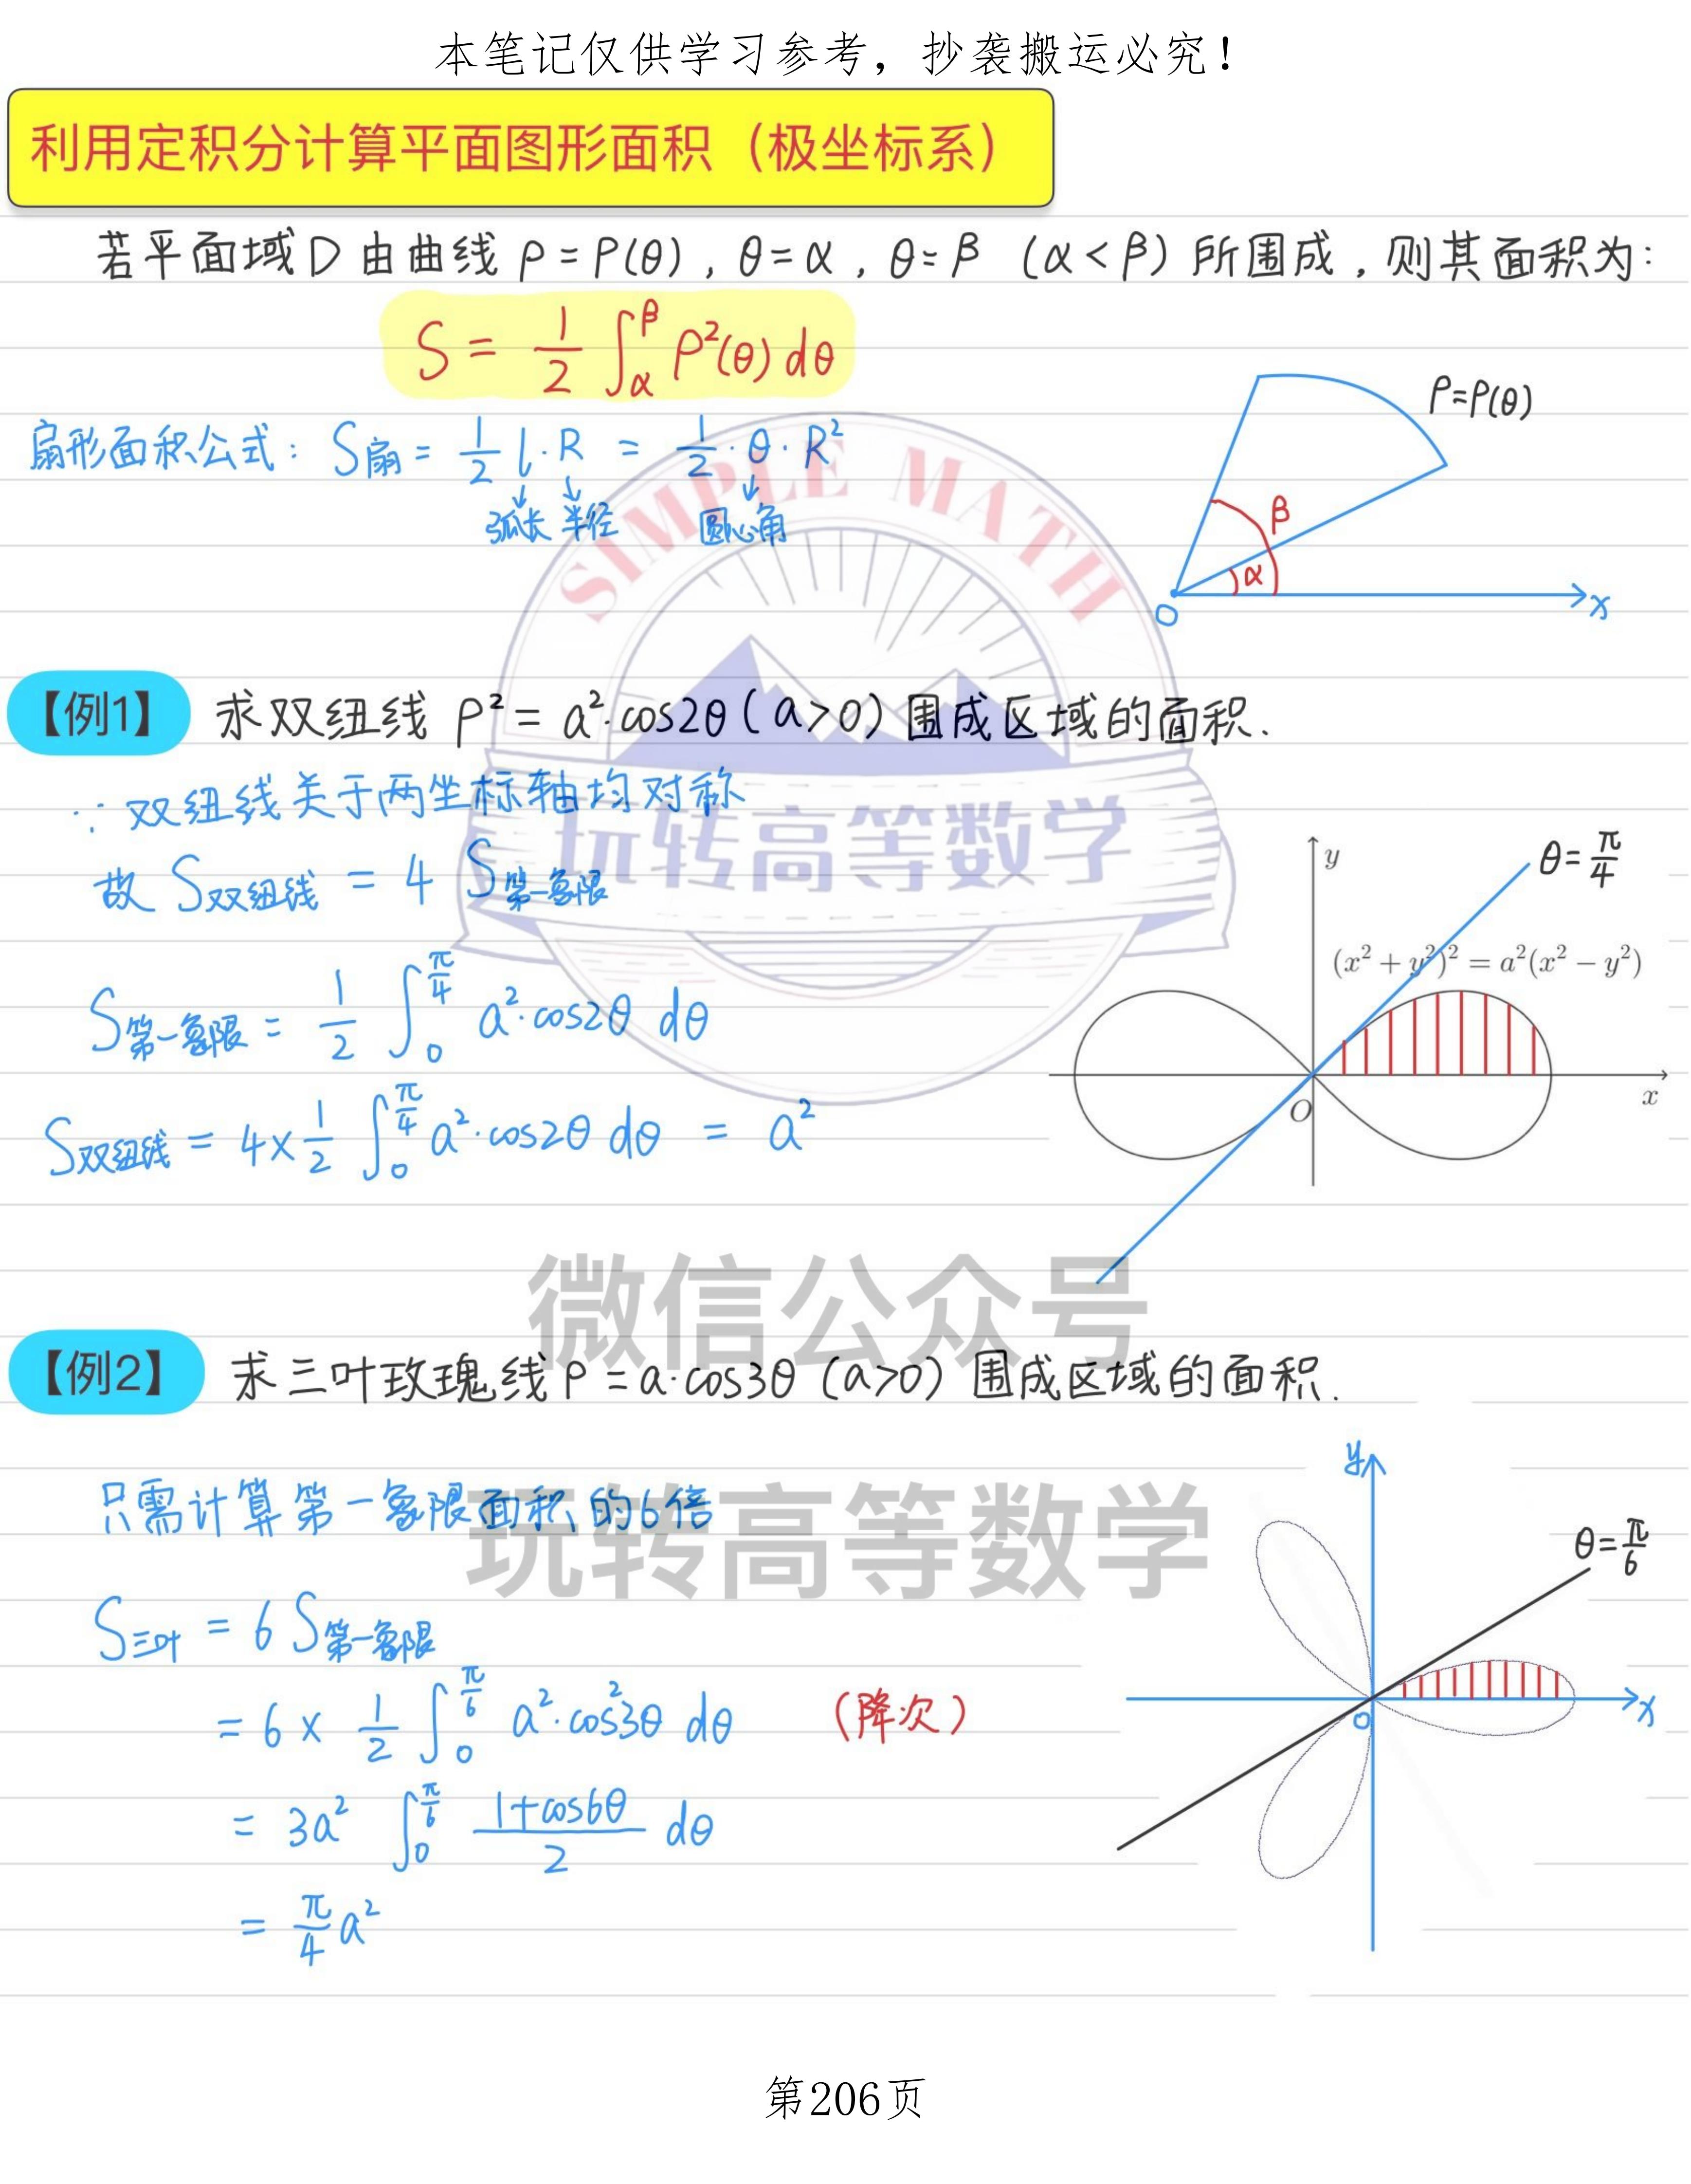 本笔记仅供学习参考，抄袭搬运必究！
利用定积分计算平面图形面积（极坐标系）
若平面域D由曲线 ρ=ρ(θ)，θ=α，θ=β (α<β) 所围成，则其面积为：
S = 1/2 ∫_α^β ρ²(θ) dθ
ρ=ρ(θ)
扇形面积公式：S扇 = 1/2 l·R = 1/2·θ·R²
弧长 半径 圆心角
β
α
O x
SIMPLE MATH
【例1】 求双纽线 ρ² = a²·cos2θ (a>0) 围成区域的面积.
∵ 双纽线关于两坐标轴均对称
玩转高等数学
故 S双纽线 = 4 S第一象限
y θ=π/4
(x² + y²)² = a²(x² − y²)
S第一象限 = 1/2 ∫_0^{π/4} a²·cos2θ dθ
O x
S双纽线 = 4×1/2 ∫_0^{π/4} a²·cos2θ dθ = a²
微信公众号
【例2】 求三叶玫瑰线 ρ = a·cos3θ (a>0) 围成区域的面积.
只需计算第一象限面积的6倍
玩转高等数学
y
θ=π/6
S三叶 = 6 S第一象限
= 6 × 1/2 ∫_0^{π/6} a²·cos²3θ dθ （降次）
O x
= 3a² ∫_0^{π/6} (1+cos6θ)/2 dθ
= π/4 a²
第206页